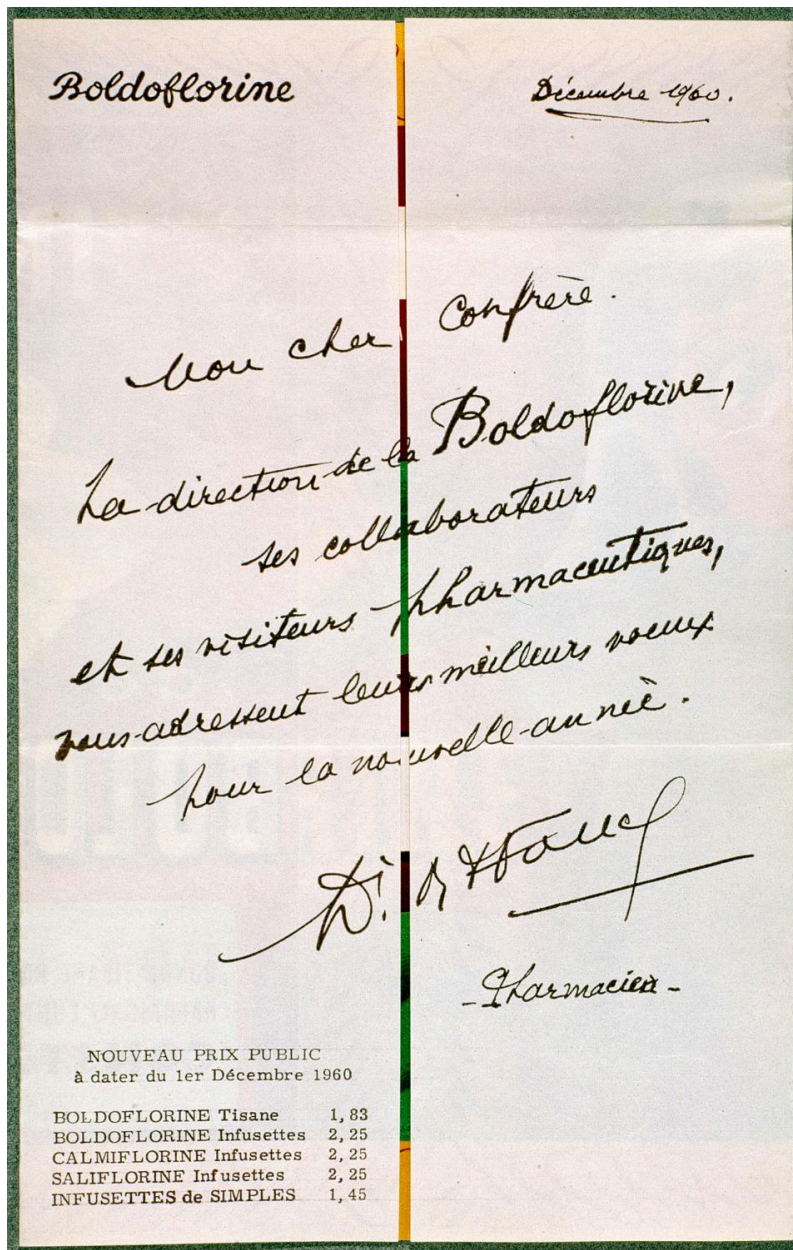 Boldoflorine
Décembre 1960.
Mon cher Confrère.
La direction de la Boldoflorine,
ses collaborateurs
et ses visiteurs pharmaceutiques,
vous adressent leurs meilleurs voeux
pour la nouvelle année.
Dr.
-Pharmacien-
NOUVEAU PRIX PUBLIC
à dater du 1er Décembre 1960
BOLDOFLORINE Tisane 1,83
BOLDOFLORINE Infusettes 2,25
CALMIFLORINE Infusettes 2,25
SALIFLORINE Infusettes 2,25
INFUSETTES de SIMPLES 1,45